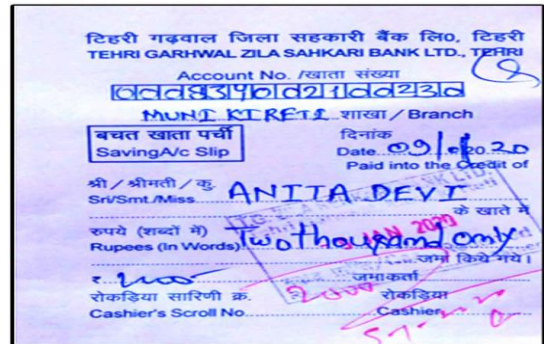 टिहरी गढ़वाल जिला सहकारी बैंक लि०, टिहरी
TEHRI GARHWAL ZILA SAHKARI BANK LTD., TEHRI
Account No. /खाता संख्या
MUNI KIRETI शाखा / Branch
बचत खाता पर्ची
SavingA/c Slip
दिनांक
Date 09/ 20 20
Paid into the Credit of
श्री / श्रीमती / कु.
Sri/Smt./Miss ANITA DEVI
के खाते में
रुपये (शब्दों में)
Rupees (In Words) Two thousand only
JAN 2020
जमा किये गये।
₹ 2000 जमाकर्ता
2000
रोकड़िया सारिणी क्र. रोकड़िया
Cashier's Scroll No. Cashier